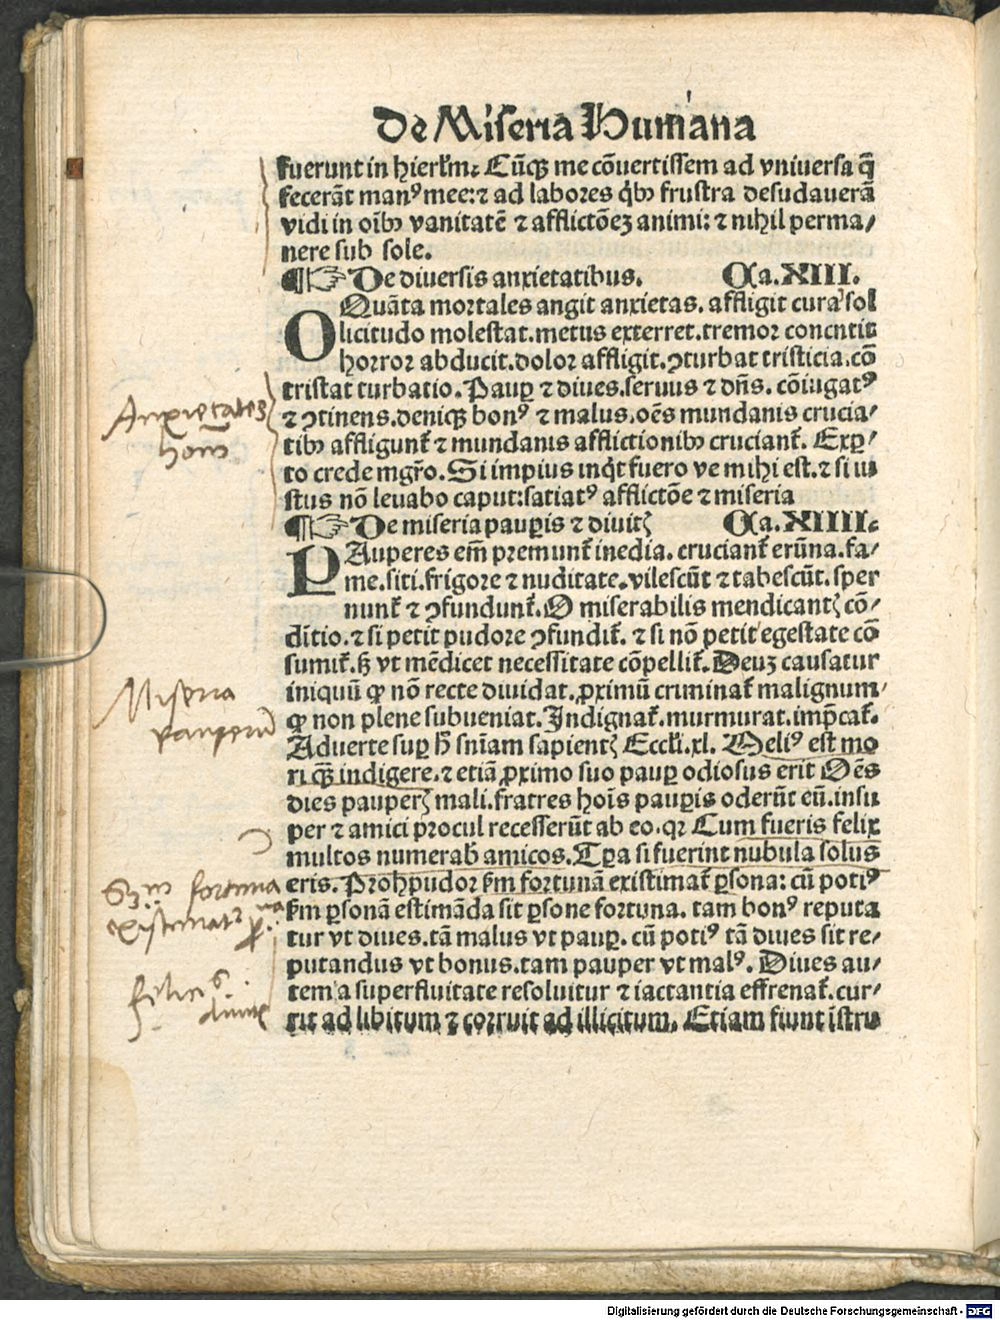 De Miseria Humana
fuerunt in hierl'm: Cūqꝫ me cōuertissem ad vniuersa q̄
fecerāt manꝰ mee: ⁊ ad labores q̇bꝫ frustra desudauerā
vidi in oībꝫ vanitatē ⁊ afflictōeꝫ animi: ⁊ nihil perma/
nere sub sole.
¶☞ De diuersis anxietatibus. Ca. XIII.
O Quāta mortales angit anxietas. affligit cura sol
licitudo molestat. metus exterret. tremor concutit
horror abducit. dolor affligit. ꝯturbat tristicia. cō
tristat turbatio. Paup̱ ⁊ diues. seruus ⁊ dn̄s. cōiugatꝰ
⁊ ꝯtinens. deniqꝫ bonꝰ ⁊ malus. oēs mundanis crucia/
tibꝫ affligunt̄ ⁊ mundanis afflictionibꝫ cruciant̄. Exp̱/
to crede mgr̄o. Si impius inq̇t fuero ve mihi est. ⁊ si iu
stus nō leuabo caput: satiatꝰ afflictōe ⁊ miseria
¶☞ De miseria paup̱is ⁊ diuitꝭ Ca. XIIII.
PAuperes em̄ premunt̄ inedia. cruciant̄ erūna. fa/
me. siti. frigore ⁊ nuditate. vilescūt ⁊ tabescūt. sper
nunt̄ ⁊ ꝯfundunt̄. O miserabilis mendicantꝭ cō/
ditio. ⁊ si petit pudore ꝯfundit̄. ⁊ si nō petit egestate cō
sumit̄. sꝫ vt mēdicet necessitate cōpellit̄. Deuꝫ causatur
iniquū ꝙ nō recte diuidat. ꝓximū criminat̄ malignum/
ꝙ non plene subueniat. Indignat̄. murmurat. imp̄cat̄.
Aduerte sup̱ h̄ sn̄iam sapientꝭ Eccl'i. xl. Meliꝰ est mo
ri qꝫ indigere. ⁊ etiā ꝓximo suo paup̱ odiosus erit Oēs
dies pauperꝭ mali. fratres hoīs paup̱is oderūt eū. insu
per ⁊ amici procul recesserūt ab eo. qꝛ Cum fueris felix
multos numerab̄ amicos. Tp̱a si fuerint nubula solus
eris. Proh pudor s̄m fortunā existimat̄ p̱sona: cū potiꝰ
s̄m p̱sonā estimāda sit p̱sone fortuna. tam bonꝰ reputa
tur vt diues. tā malus vt paup̱. cū potiꝰ tā diues sit re/
putandus vt bonus. tam pauper vt malꝰ. Diues au/
tem a superfluitate resoluitur ⁊ iactantia effrenat̄. cur/
rit ad libitum ⁊ corruit ad illicitum. Etiam fiunt īstru
Anxietates
hom̄
Miseria
pauperū
Sꝫm fortuna
existimatr
Digitalisierung gefördert durch die Deutsche Forschungsgemeinschaft - DFG